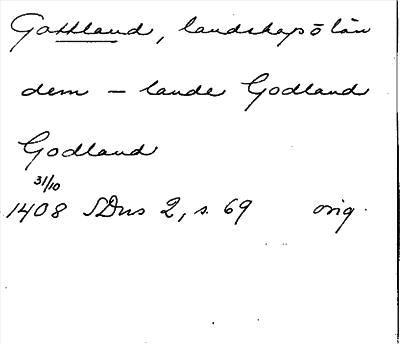 Gottland, landskap o län
dem - lande Godland
Godland
31/10
1408 SDns 2, s. 69 orig.